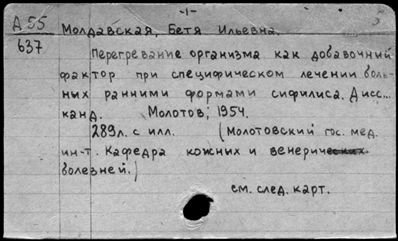 -1-
А 55 Молдавская, Бетя Ильевна.
637
Перегревание организма как добавочный
фактор при специфическом лечении боль-
ных ранними формами сифилиса. Дисс...
канд. Молотов, 1954.
289л. с илл. (Молотовский гос. мед.
ин-т. Кафедра кожных и венерических
болезней.)
см. след. карт.